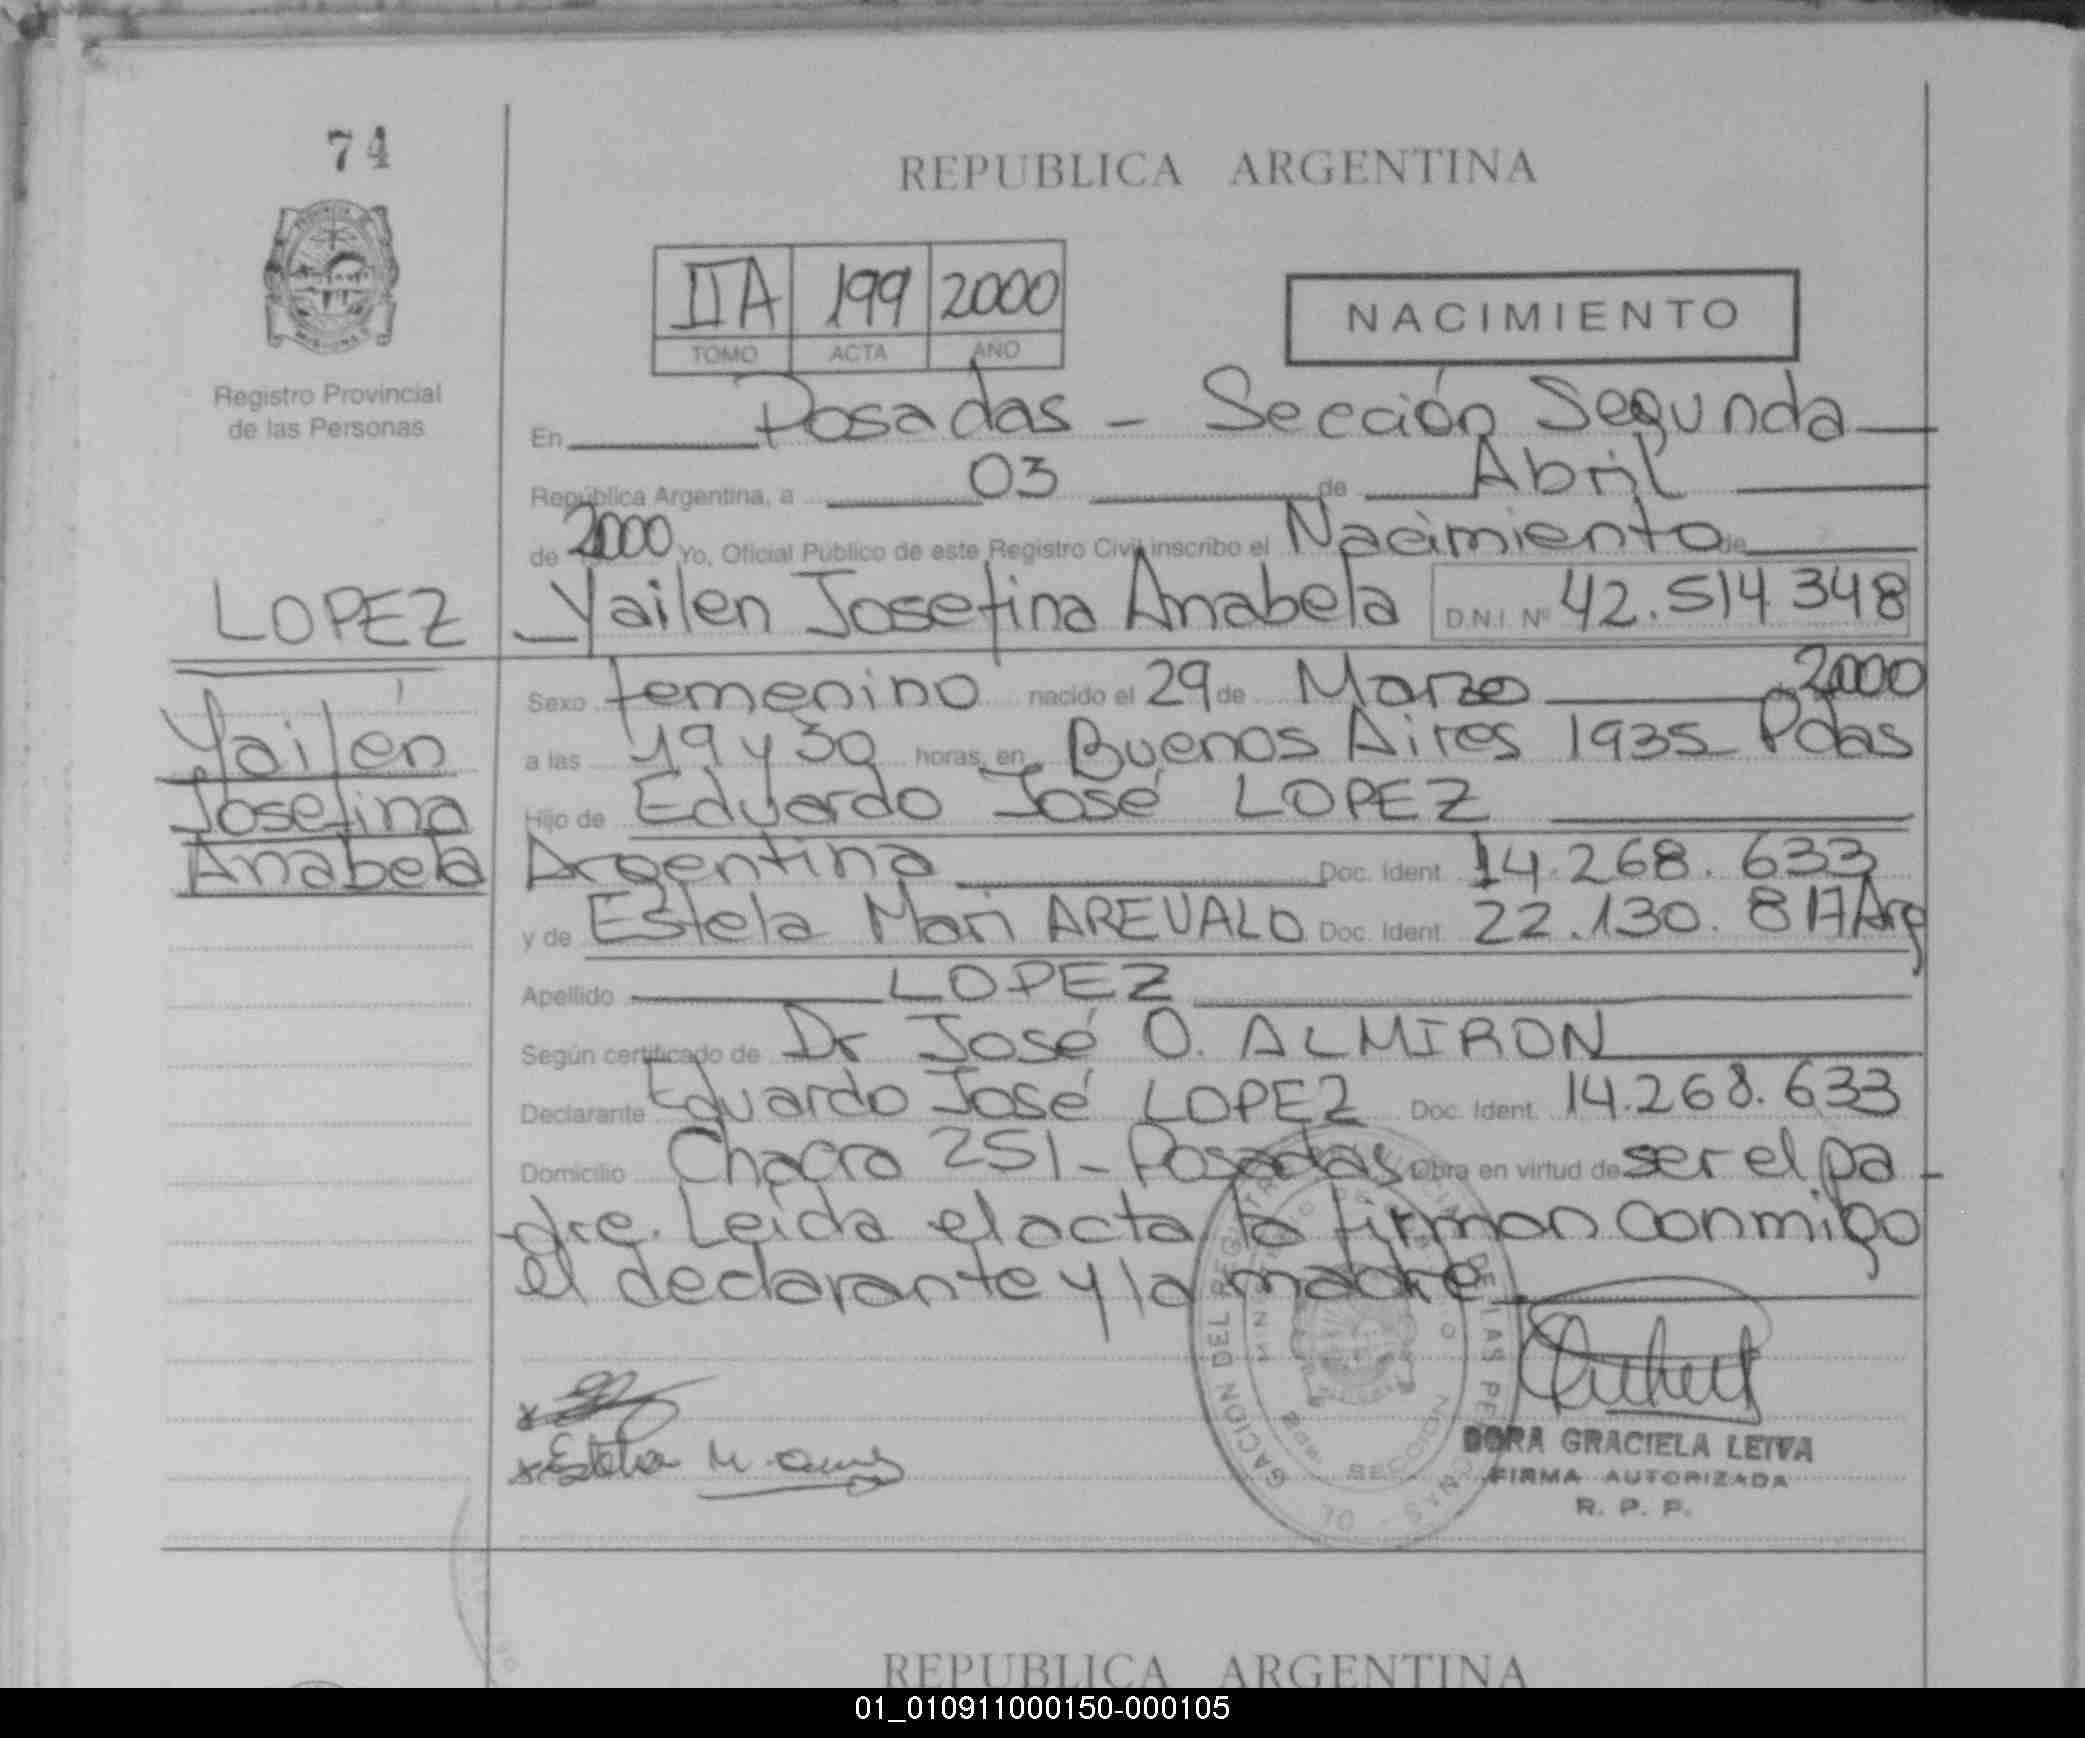 74
REPUBLICA ARGENTINA
IIA 199 2000
TOMO ACTA AÑO
NACIMIENTO
Registro Provincial
de las Personas
En Posadas - Sección Segunda
República Argentina, a 03 de Abril
de 2000 Yo, Oficial Público de este Registro Civil inscribo el Nacimiento de
LOPEZ
Yailen Josefina Anabela D.N.I. Nº 42.514348
Yailén
Josefina
Anabela
Sexo femenino nacido el 29 de Marzo 2000
a las 19 y 30 horas, en Buenos Aires 1935 Pdas
Hijo de Eduardo José LOPEZ
Argentina Doc. Ident. 14.268.633
y de Estela Mari AREVALO Doc. Ident. 22.130.817 Arg
Apellido LOPEZ
Según certificado de Dr José O. ALMIRON
Declarante Eduardo José LOPEZ Doc. Ident. 14.268.633
Domicilio Chacra 251 - Posadas Obra en virtud de ser el pa-
dre. Leida el acta la firman conmigo
el declarante y la madre
x
x Estela M.
DORA GRACIELA LEIVA
FIRMA AUTORIZADA
R. P. P.
REPUBLICA ARGENTINA
01_010911000150-000105